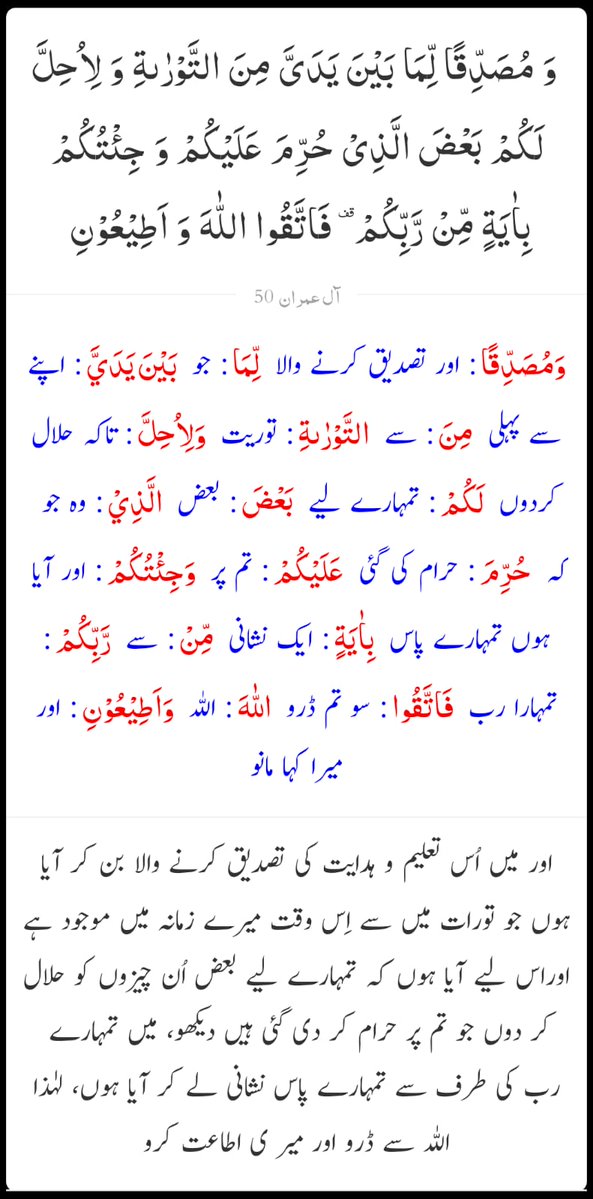 وَ مُصَدِّقًا لِّمَا بَيْنَ يَدَىَّ مِنَ التَّوْرٰىةِ وَ لِاُحِلَّ
لَكُمْ بَعْضَ الَّذِىْ حُرِّمَ عَلَيْكُمْ وَ جِئْتُكُمْ
بِاٰيَةٍ مِّنْ رَّبِّكُمْ ۫ فَاتَّقُوا اللّٰهَ وَ اَطِيْعُوْنِ
آل عمران 50
وَمُصَدِّقًا : اور تصدیق کرنے والا لِّمَا : جو بَيْنَ يَدَيَّ : اپنے
سے پہلی مِنَ : سے التَّوْرٰىةِ : توریت وَلِاُحِلَّ : تاکہ حلال
کردوں لَكُمْ : تمہارے لیے بَعْضَ : بعض الَّذِيْ : وہ جو
کہ حُرِّمَ : حرام کی گئی عَلَيْكُمْ : تم پر وَجِئْتُكُمْ : اور آیا
ہوں تمہارے پاس بِاٰيَةٍ : ایک نشانی مِّنْ : سے رَّبِّكُمْ :
تمہارا رب فَاتَّقُوا : سو تم ڈرو اللّٰهَ : اللہ وَاَطِيْعُوْنِ : اور
میرا کہا مانو
اور میں اُس تعلیم و ہدایت کی تصدیق کرنے والا بن کر آیا
ہوں جو تورات میں سے اِس وقت میرے زمانہ میں موجود ہے
اوراس لیے آیا ہوں کہ تمہارے لیے بعض اُن چیزوں کو حلال
کر دوں جو تم پر حرام کر دی گئی ہیں دیکھو، میں تمہارے
رب کی طرف سے تمہارے پاس نشانی لے کر آیا ہوں، لہٰذا
اللہ سے ڈرو اور میر ی اطاعت کرو